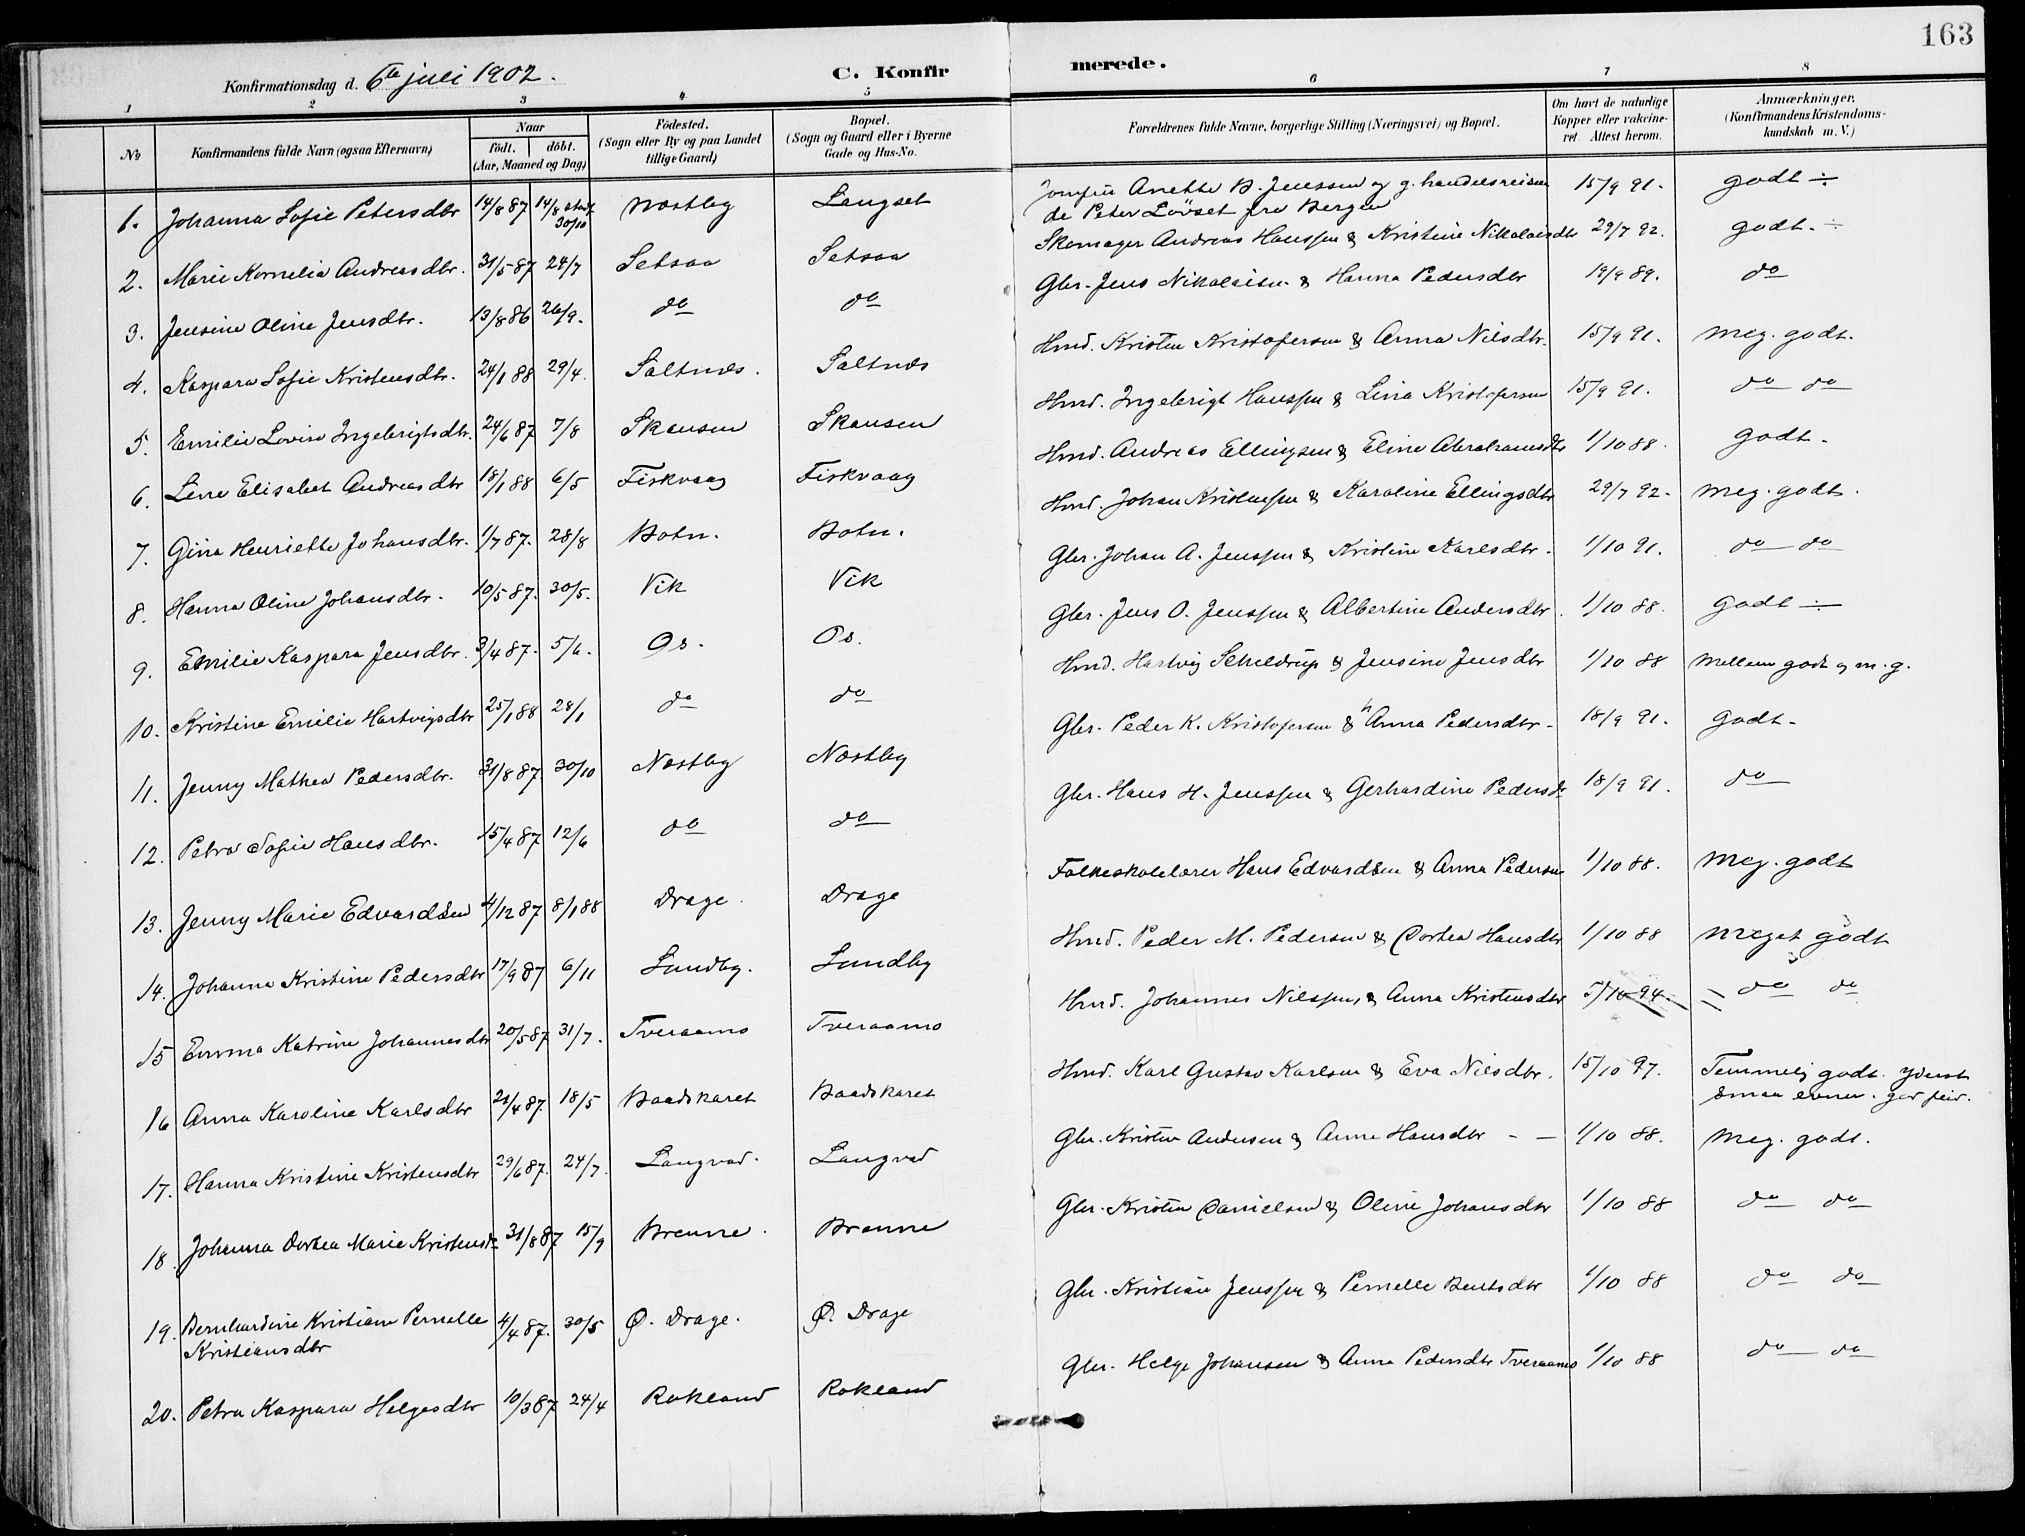 163
Konfirmationsdag d. 6te juli 1902.
C. Konfir
merede.
1 2 3 4 5 6 7 8
No
Konfirmandens fulde Navn (ogsaa Efternavn)
Naar
født. døbt.
(Aar, Maaned og Dag)
Fødested.
(Sogn eller By og paa Landet
tillige Gaard)
Bopæl.
(Sogn og Gaard eller i Byerne
Gade og Hus-No.
Forældrenes fulde Navne, borgerlige Stilling (Næringsvei) og Bopæl.
Om havt de naturlige
Kopper eller vakcine-
ret. Attest herom.
Anmærkninger.
(Konfirmandens Kristendoms-
kundskab m. V.)
1. Johanna Sofie Petersdtr 14/8 87 14/8 30/10 Nostby Langset Jomfru Anette B. Jenssen og g. handelsreisen
de Peter Løvset fra Bergen 15/9 91. godt ÷
2. Marie Kornelia Andreasdtr. 31/5 87 24/7 Setsaa Setsaa Skomager Andreas Hanssen & Kristine Nikolaisdtr 29/7 92. godt. ÷
3. Jensine Oline Jensdtr. 13/8 86 26/9. do do Gbr. Jens Nikolaisen & Hanna Pedersdtr 19/9 89. do
4. Kaspara Sofie Kristensdtr. 24/1 88 29/4. Saltnes. Saltnes Hmd. Kristen Kristofersen & Anna Nilsdtr. 15/9 91. meg. godt.
5. Emilie Lovise Ingebrigtsdtr. 24/6 87 7/8 Skansen Skansen Hmd. Ingebrigt Hanssen & Lina Kristofersen 15/9 91. do do
6. Line Elisabet Andreasdtr 18/1 88 6/5 Fiskvaag Fiskvaag Hmd. Andreas Ellingsen & Eline Abrahamsdtr 1/10 88. godt.
7. Gina Henriette Johansdtr. 1/7 87. 28/8 Botn. Botn. Hmd. Johan Kristenssen & Karoline Ellingsdtr 29/7 92. meg. godt.
8. Hanna Oline Johansdtr. 10/5 87. 30/5. Vik Vik Gbr. Johan A. Jenssen & Kristine Karlsdtr. 1/10 91. do do
9. Emilie Kaspara Jensdtr. 3/4 87. 5/6. Os. Os. Gbr. Jens O. Jenssen & Albertine Andersdtr. 1/10 88. godt ÷
10. Kristine Emilie Hartvigsdtr 25/1 88 28/1 do do Hmd. Hartvig Scheldrup & Jensine Jensdtr 1/10 88 mellem godt og m. g.
11. Jenny Mathea Pedersdtr. 31/8 87. 30/10 Nostby Nostby Gbr. Peder K. Kristofersen & Anna Pedersdtr. 18/9 91. godt.
12. Petra Sofie Hansdtr. 15/4 87 12/6 do do Gbr. Hans H. Jenssen & Gerhardine Pedersdr 18/9 91. do
13. Jenny Marie Edvardsen 4/12 87 8/1 88 Drage. Drage Folkeskolelærer Hans Edvardsen & Anna Pedersen 1/10 88. meg. godt
14. Johanna Kristine Pedersdtr 17/9 87 6/11 Sundby. Sundby Hmd. Peder M. Pedersen & Dortea Hansdtr 1/10 88 meget godt
15 Emma Katrine Johannesdtr 20/5 87 31/7. Tveraamo Tveraamo Hmd. Johannes Nilssen, & Anna Kristensdtr 5/10 94. do do
16 Anna Karoline Karlsdtr 21/4 87. 18/5 Baadskaret Baadskaret Hmd. Karl Gustav Karlsen & Eva Nilsdtr. 15/10 97. Temmelig godt. yderst
smaa evner. god flid.
17. Hanna Kristine Kristensdtr 29/6 87. 24/7. Langvad. Langvad Gbr. Kristen Andersen & Anne Hansdtr - - 1/10 88. meg. godt.
18 Johanna Dortea Marie Kristensdr 31/8 87 15/9 Brenne. Brenne Gbr. Kristen Danielsen & Oline Johansdtr 1/10 88 do do
19. Bernhardine Kristiane Pernelle
Kristiansdtr 4/4 87. 30/5 Ø. Drage. Ø. Drage Gbr. Kristian Jenssen & Pernelle Bentsdtr 1/10 88 do do
20. Petra Kaspara Helgesdtr 10/3 87 24/4 Rokland Rokland Gbr. Helge Johansen & Anna Pedersdtr Tveraamo 1/10 88 do do